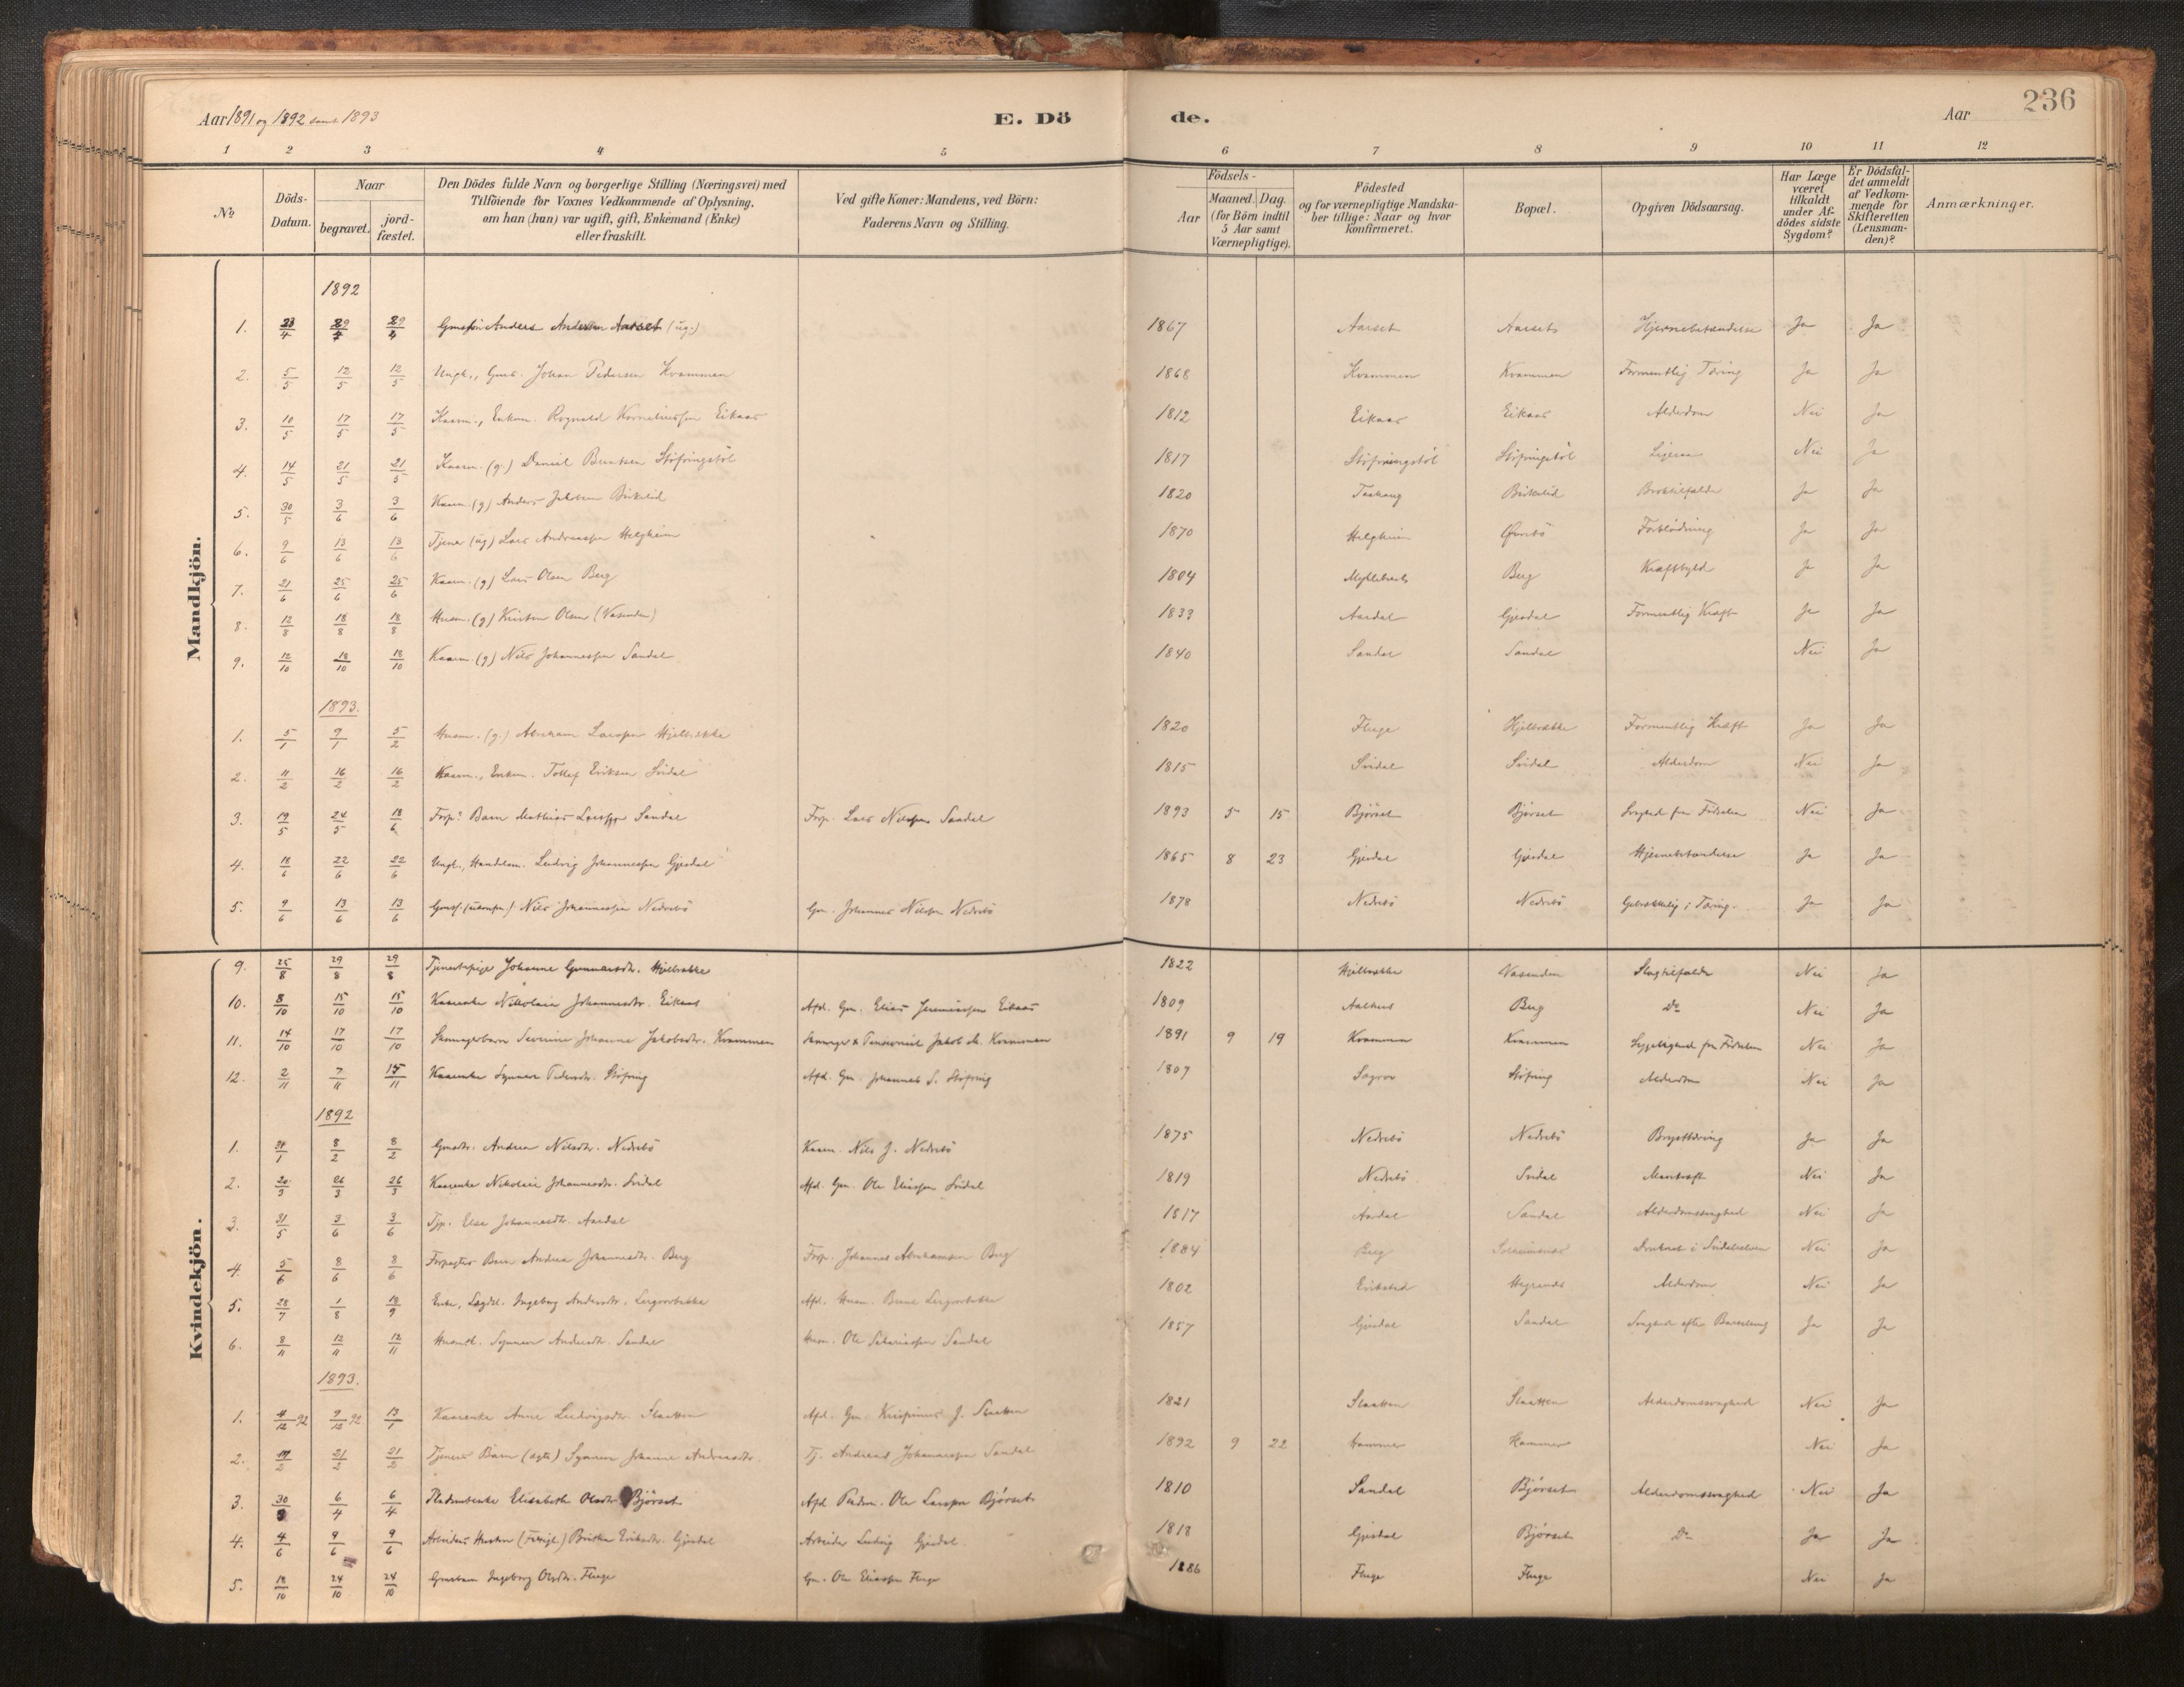 Aar 1891 og 1892 samt 1893
E. Dö
de.
Aar
236
1 2 3 4 5 6 7 8 9 10 11 12
No
Döds-Datum.
Naar
begravet.
jord-fæstet.
Den Dödes fulde Navn og borgerlige Stilling (Næringsvei) med Tilföiende for Voxnes Vedkommende af Oplysning, om han (hun) var ugift, gift, Enkemand (Enke) eller fraskilt.
Ved gifte Koner: Mandens, ved Börn: Faderens Navn og Stilling.
Födsels-
Aar
Maaned. Dag.
(for Börn indtil 5 Aar samt Værnepligtige).
Födested og for værnepligtige Mandskaber tillige: Naar og hvor konfirmeret.
Bopæl.
Opgiven Dödsaarsag.
Har Læge været tilkaldt under Afdödes sidste Sygdom?
Er Dödsfaldet anmeldt af Vedkommende for Skifteretten (Lensmanden)?
Anmærkninger.
Mandkjön.
1892
1. 23/4 29/4 29/4 Gmssön Anders Andersen Aarset (ug.) 1867 Aarset Aarset Hjernebetændelse Ja Ja
2. 5/5 12/5 12/5 Ungk., Gmd. Johan Pedersen Kvammen 1868 Kvammen Kvammen Formentlig Tæring Ja Ja
3. 10/5 17/5 17/5 Kaarm., Enkem. Rognald Korneliussen Eikaas 1812 Eikaas Eikaas Alderdom Nei Ja
4. 14/5 21/5 21/5 Kaarm. (g.) Daniel Berntsen Stöfringstöl 1817 Stöfringstöl Stöfringstöl Ligesaa Nei Ja
5. 30/5 3/6 3/6 Kaarm. (g) Anders Birkelid 1820 Birkelid Broktilfælde Ja Ja
6. 9/6 13/6 13/6 Tjener (ug) Lars Andreassen Helgheim 1870 Helgheim Övrebö Forblödning Ja Ja
7. 21/6 25/6 25/6 Kaarm. (g) Lars Olsen Berg 1804 Myklebust Berg Kræftbyld Ja Ja
8. 12/8 18/8 18/8 Husm. (g) Kristen Olsen (Vasenden) 1833 Aardal Gjesdal Formentlig Kræft Ja Ja
9. 12/10 18/10 18/10 Kaarm. (g) Nils Johannessen Sandal 1840 Sandal Sandal Nei Ja
1893.
1. 5/1 9/1 5/2 Husm. (g.) Abraham Larssen Hjelbrekke 1820 Fluge Hjelbrække Formentlig Kræft Ja Ja
2. 11/2 16/2 16/2 Kaarm., Enkem. Tollef Eriksen Svidal 1815 Svidal Svidal Alderdom Nei Ja
3. 19/5 24/5 18/6 Forp. Barn Mathias Larssen Sandal Forp. Lars Nilssen Sandal 1893 5 15 Bjørset Bjørset Svaghed fra Fødselen Nei Ja
4. 18/6 22/6 22/6 Ungk., Handelsm. Ludvig Johannessen Gjesdal 1865 8 23 Gjesdal Gjesdal Hjernebetændelse Ja Ja
5. 9/6 13/6 13/6 Nils Johannessen Nedrebö Gm. Johannes Nilssen Nedrebö 1878 Nedrebö Nedrebö Tæring. Ja Ja
Kvindekjön.
9. 25/8 29/8 29/8 Tjenestepige Johanne Gunnarsdtr. Hjelbrekke 1822 Hjelbrække Vasenden Slagtilfælde Nei Ja
10. 8/10 15/10 15/10 Kaarenke Nikolaia Johannesdtr. Eikaas Afd. Gm. Elias Jeremiassen Eikaas 1809 Aalhus Berg Do Nei Ja
11. 14/10 17/10 17/10 Severine Johanna Jakobsdtr. Kvammen Jakob Kvammen 1891 9 19 Kvammen Kvammen Sygelighed fra Fødselen Nei Ja
12. 2/11 7/11 15/11 Kaarenke Synneve Pedersdtr. Stöfring Afd. Gm. Johannes S. Stöfring 1807 Sægrov Stöfring Alderdom Nei Ja
1892
1. 31/1 8/2 8/2 Gmsdtr. Andrea Nilsdtr. Nedrebö Kaarm. Nils J. Nedrebö 1875 Nedrebö Nedrebö Brysttæring Ja Ja
2. 20/3 26/3 26/3 Kaarenke Nikolaia Johannesdtr. Svidal Afd. Gm. Ole Eliassen Svidal 1819 Nedrebö Svidal Mavekræft Nei Ja
3. 31/5 3/6 3/6 Tjp. Else Johannesdtr. Aardal 1817 Aardal Sandal Alderdomssvaghed Nei Ja
4. 5/6 8/6 8/6 Forpagter Barn Andrea Johannesdtr. Berg Forp. Johannes Abrahamsen Berg 1884 Berg Druknet i Nei Ja
5. 28/7 1/8 18/9 Enke, Lægdsl. Ingeborg Andersdtr. Lergrovbakke Afd. Husm. Lergrovbakke 1802 Erikstad Alderdom Nei Ja
6. 8/11 12/11 12/11 Synneve Andersdtr. Sandal Husm. Ole Sakariassen Sandal 1857 Gjesdal Sandal Svaghed efter Barselseng Ja Ja
1893.
1. 4/12 92 9/12 92 13/1 Kaarenke Anne Ludvigsdtr. Slaatten Afd. Gm. Krispinus J. Slaatten 1821 Slaatten Slaatten Alderdomssvaghed Nei Ja
2. 17/2 21/2 21/2 Tjeners Barn (ægte) Synneve Johanne Andreasdtr. Tj. Andreas Johannessen Sandal 1892 9 22 Hammer Hammer Nei Ja
3. 30/3 6/4 6/4 Elisabeth Olsdtr. Bjørset Afd. Ole Larssen Bjørset 1810 Sandal Bjørset Alderdomssvaghed Nei Ja
4. 4/6 9/6 9/6 Arbeiders Hustru Brithe Eriksdtr. Gjesdal Arbeider Ludvig Gjesdal. 1818 Gjesdal Bjørset Do Ja Ja
5. 18/10 24/10 24/10 Gmsbarn Ingeborg Olsdtr. Fluge Gm. Ole Eliassen Fluge 1886 Fluge Fluge Nei Ja